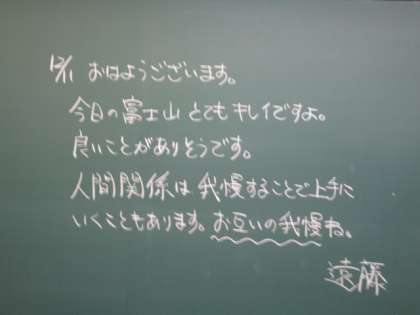 12/11 おはようございます。
今日の富士山とてもキレイですよ。
良いことがありそうです。
人間関係は我慢することで上手に
いくこともあります。お互いの我慢ね。
遠藤